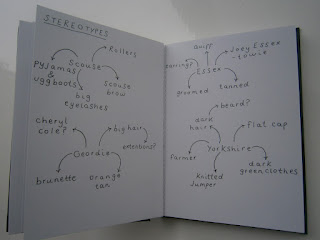 STEREOTYPES
Rollers
Pyjamas
& 
uggboots
Scouse
Scouse
brow
big
eyelashes
cheryl
cole?
big hair
Geordie
extensions?
brunette
orange
tan
quiff
Joey Essex
- towie
earring?
Essex
groomed
tanned
beard?
dark
hair
flat cap
Yorkshire
farmer
knitted
jumper
dark
green clothes